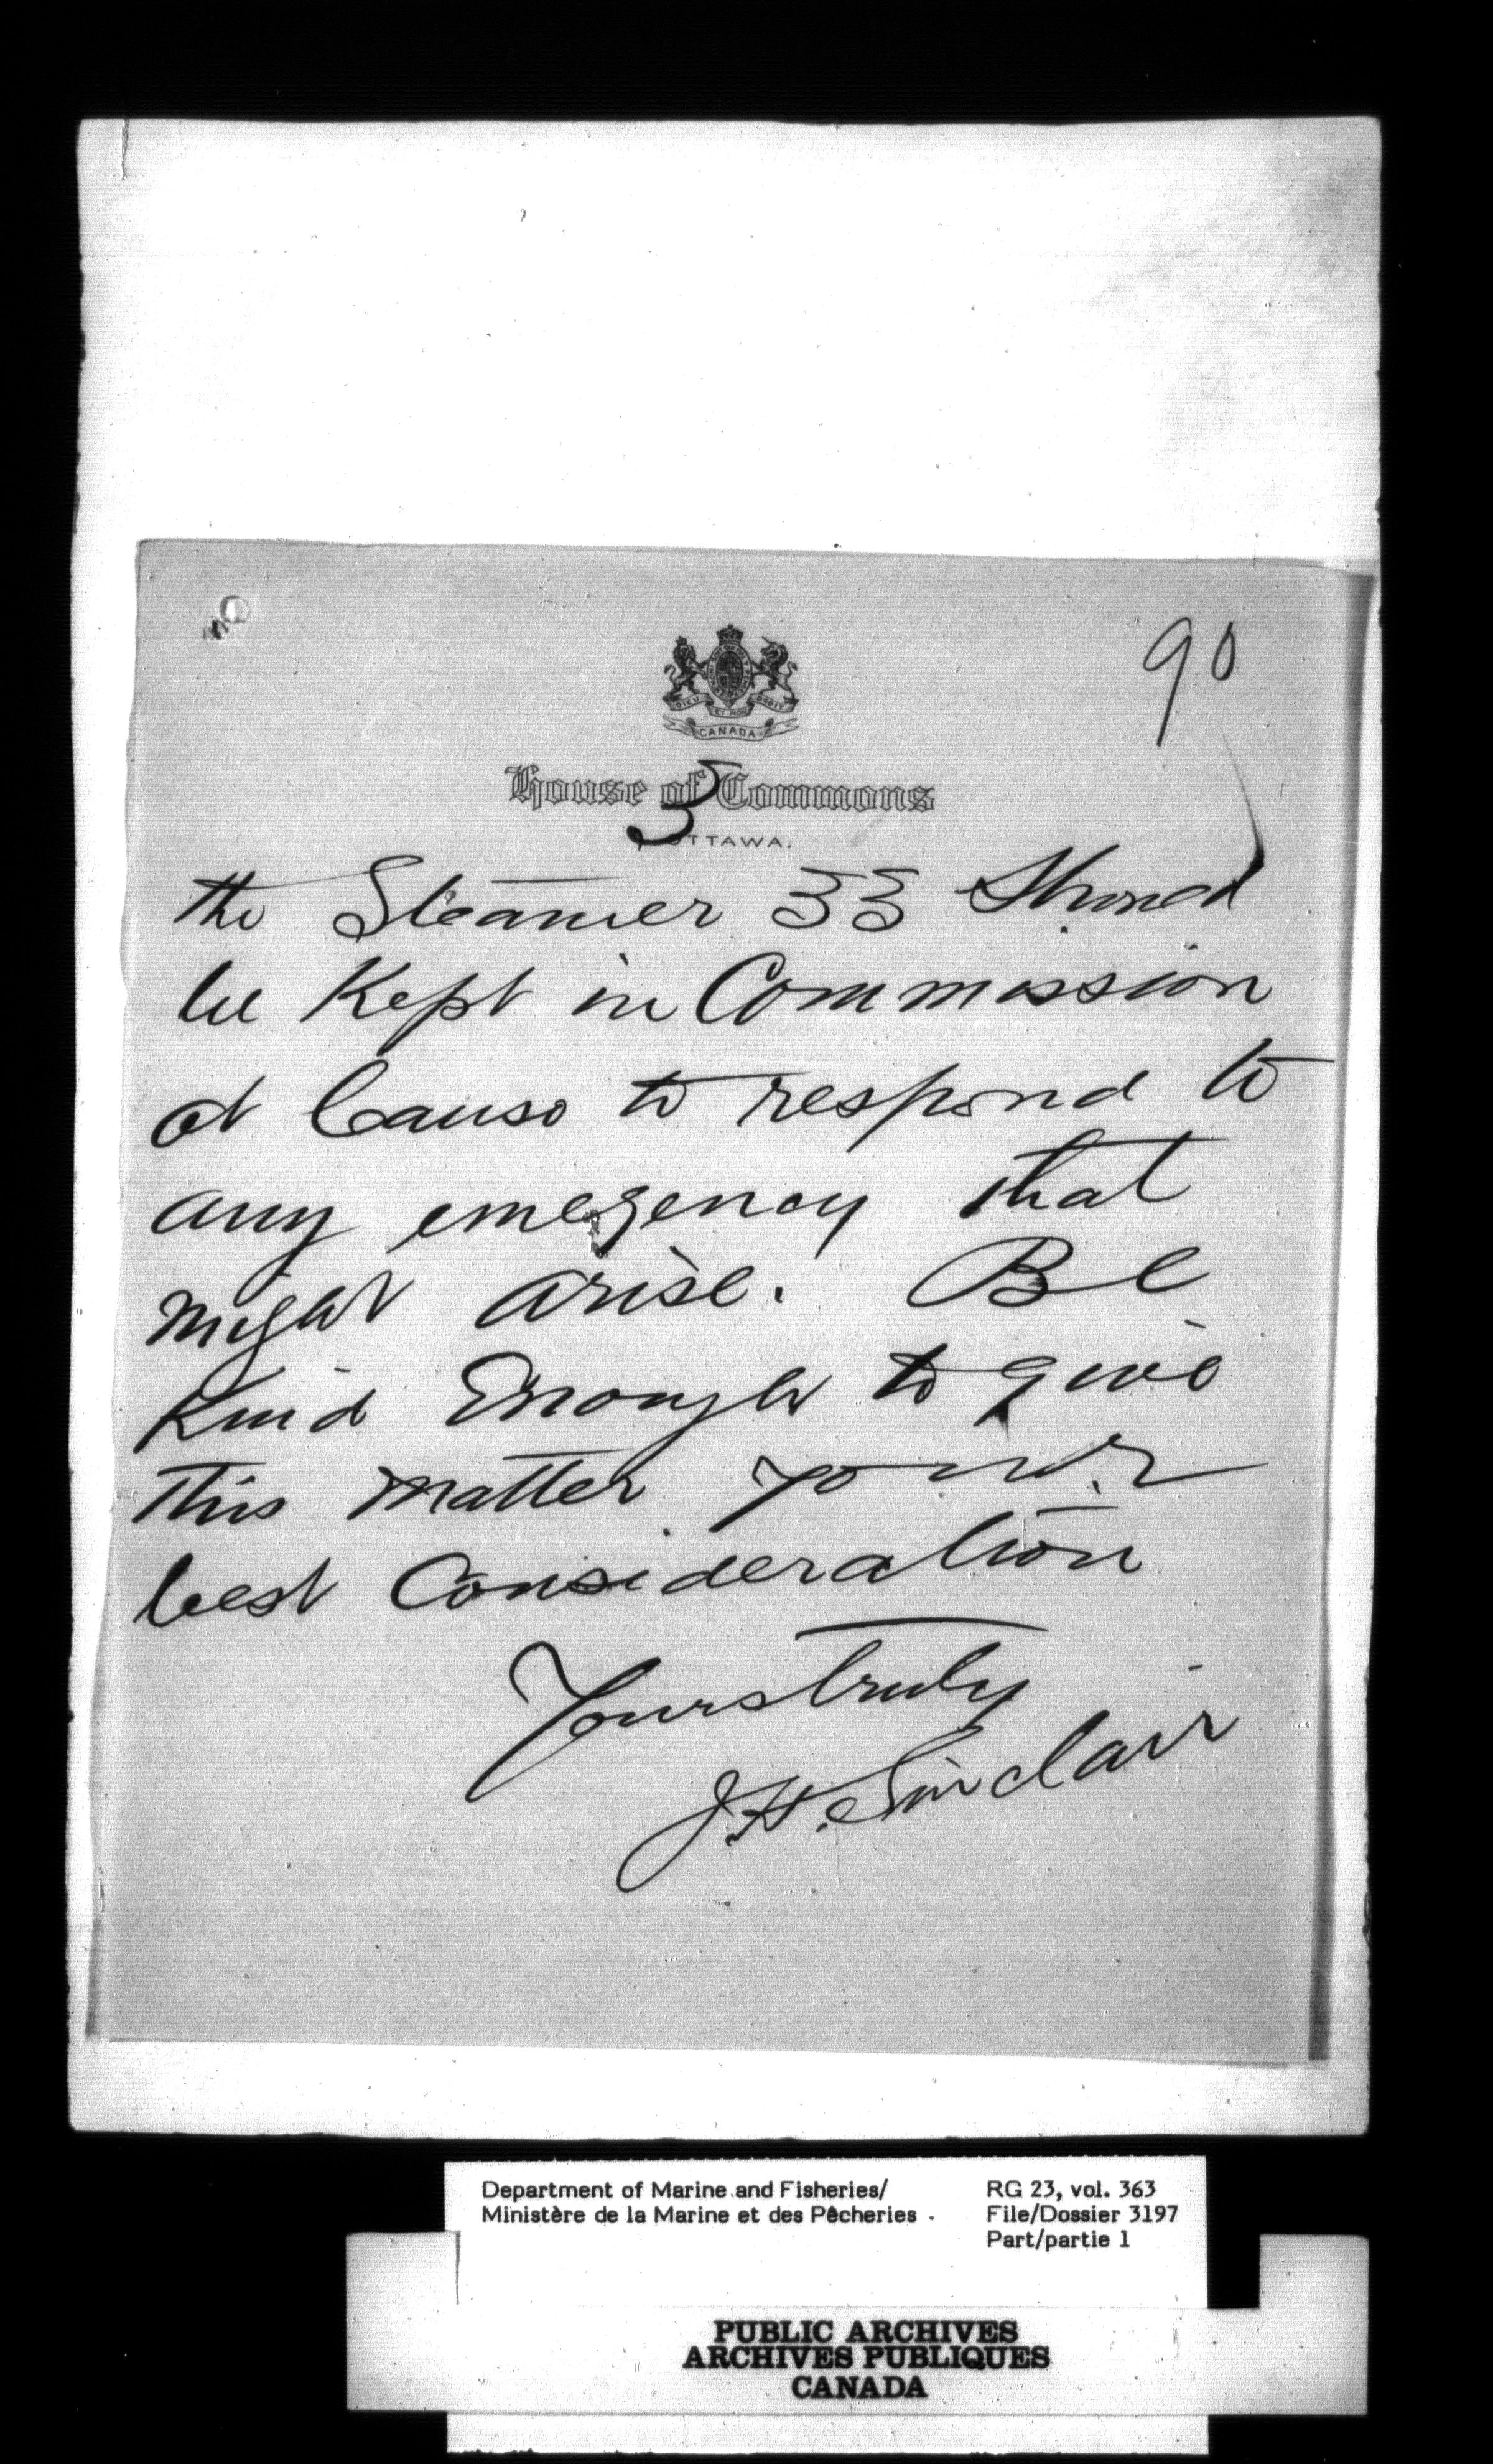 90
DIEU ET MON DROIT
CANADA
House of Commons
5
OTTAWA.
the Steamer 33 Should
be Kept in Commission
at Canso to respond to
any emegency that
might arise. Be
Kind Enough to give
this matter your
best Consideration
Yours truly
J.H. Sinclair
Department of Marine and Fisheries/
Ministère de la Marine et des Pêcheries
RG 23, vol. 363
File/Dossier 3197
Part/partie 1
PUBLIC ARCHIVES
ARCHIVES PUBLIQUES
CANADA